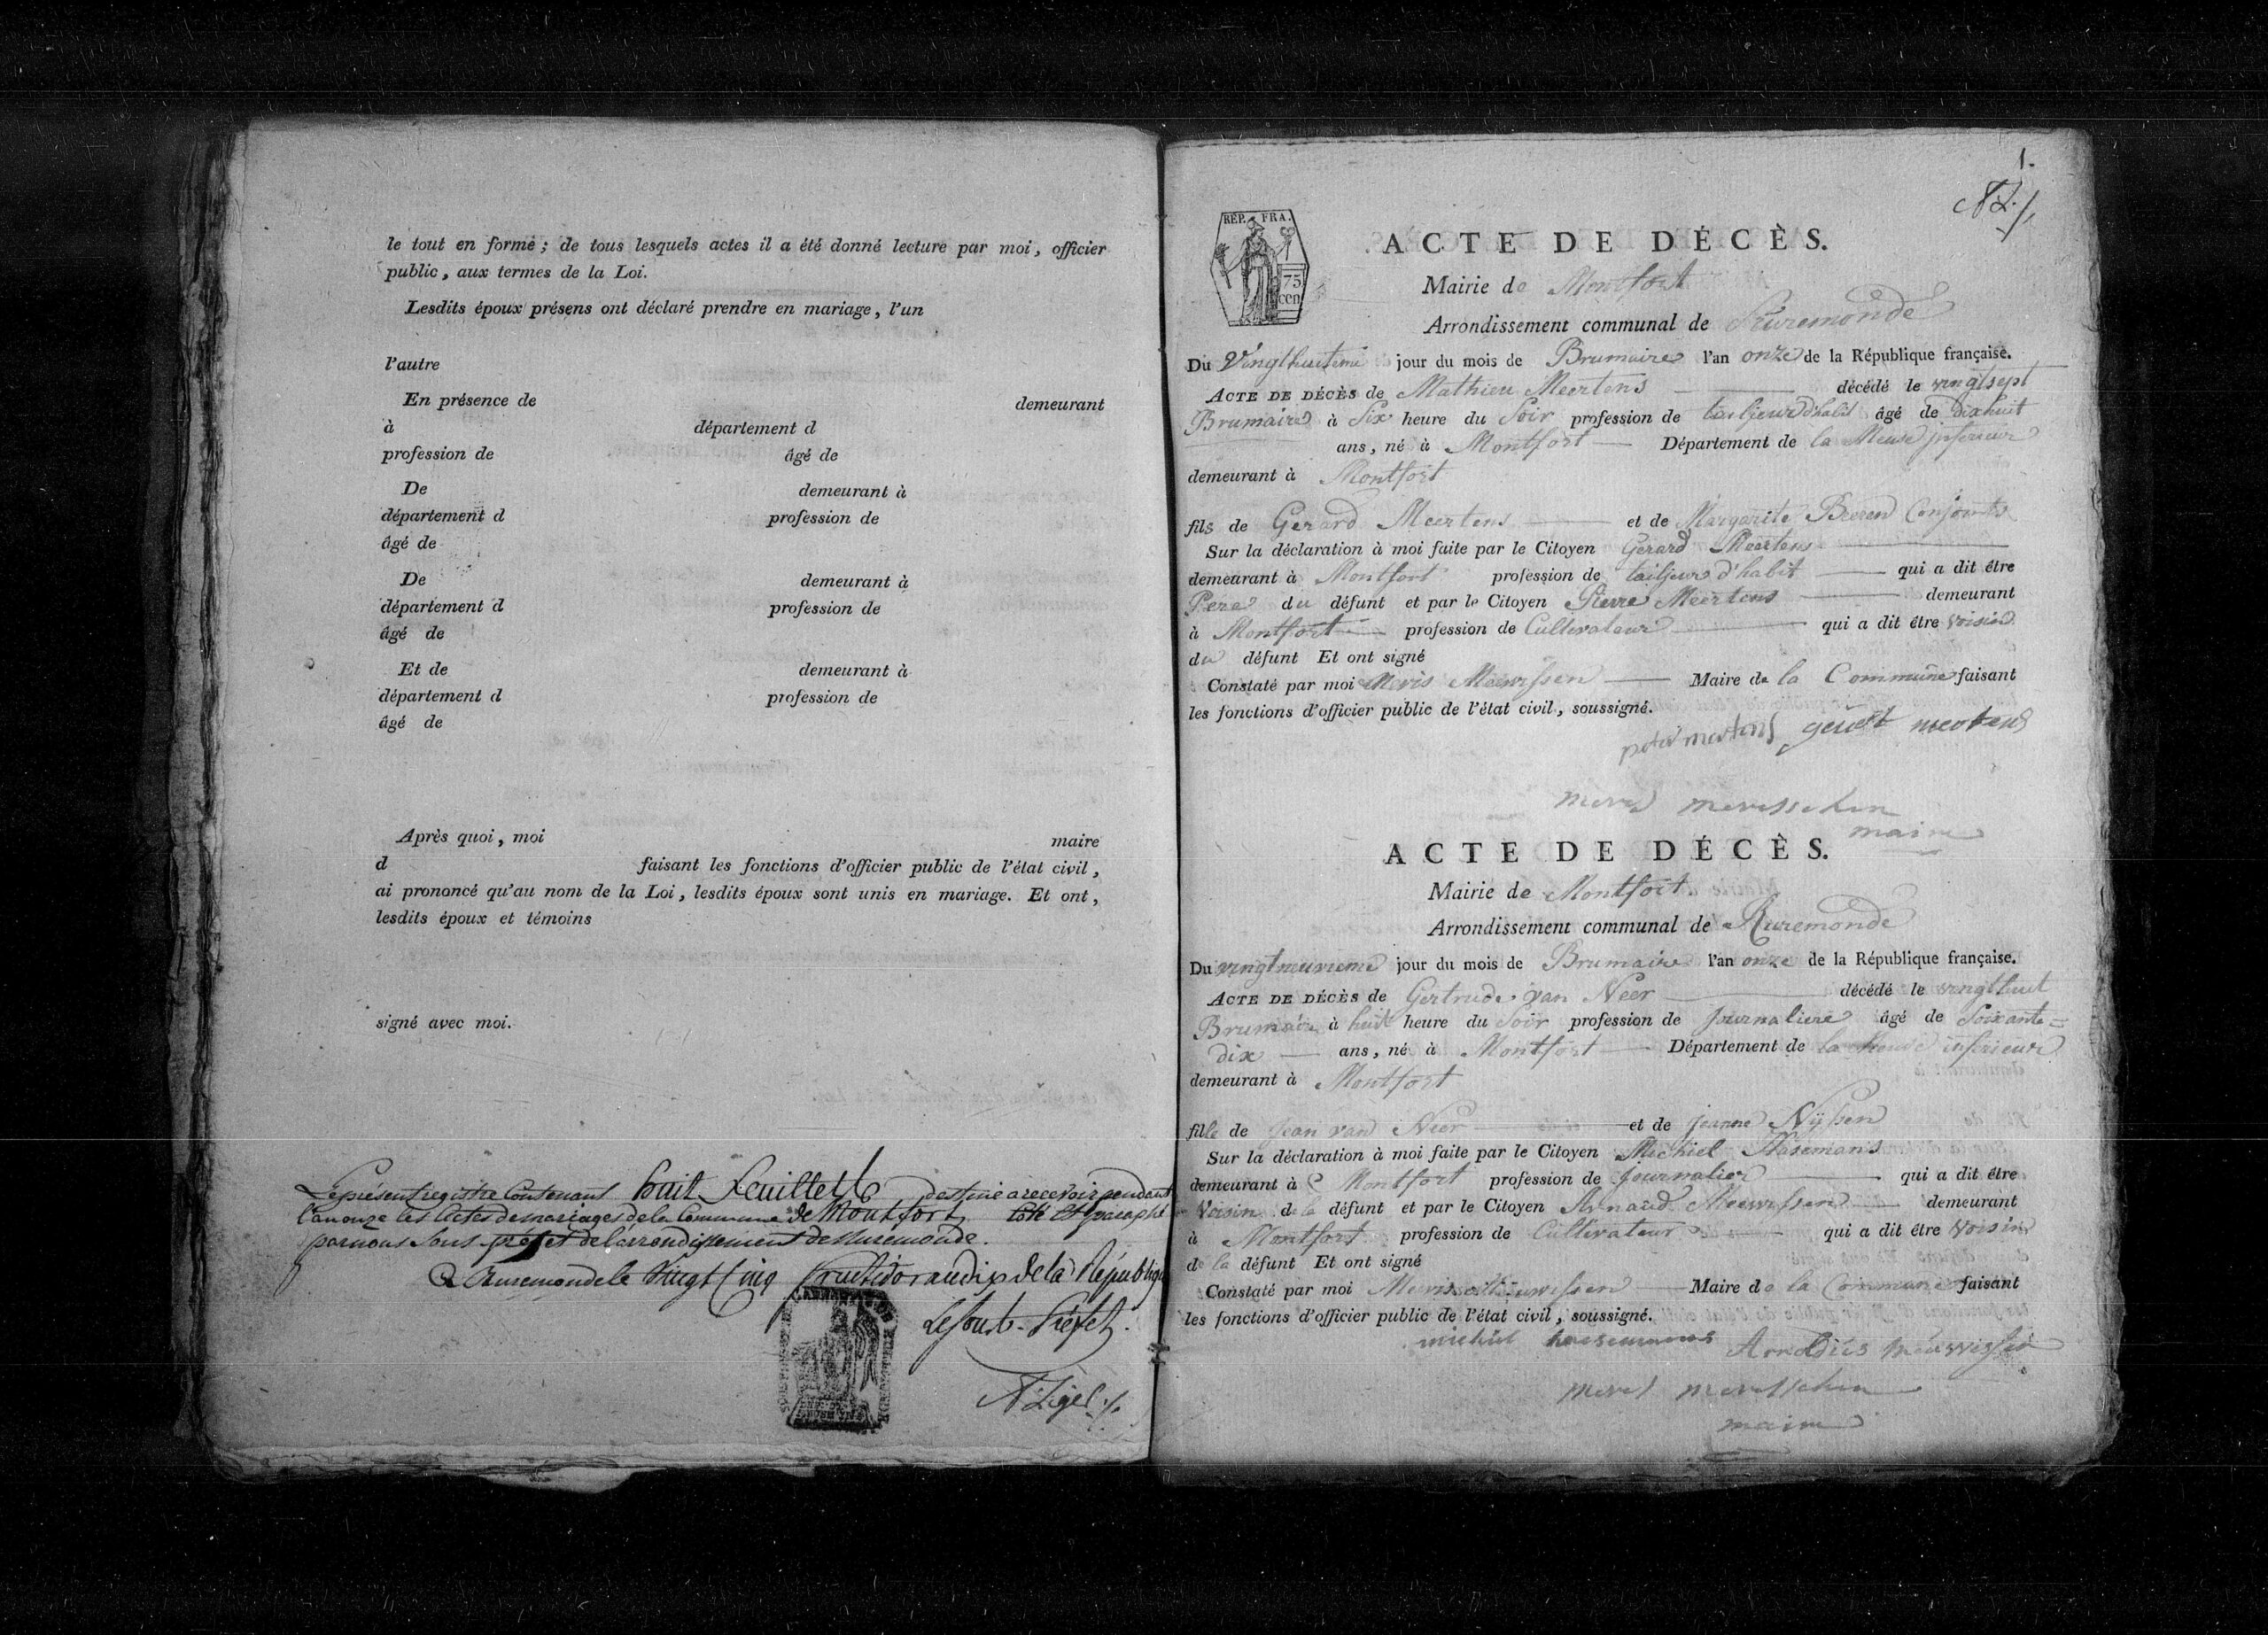 le tout en forme ; de tous lesquels actes il a été donné lecture par moi, officier
public, aux termes de la Loi.
Lesdits époux présens ont déclaré prendre en mariage, l'un
l'autre
En présence de demeurant
à département d
profession de âgé de
De demeurant à
département d profession de
âgé de
De demeurant à
département d profession de
âgé de
Et de demeurant à
département d profession de
âgé de
Après quoi, moi maire
d faisant les fonctions d'officier public de l'état civil,
ai prononcé qu'au nom de la Loi, lesdits époux sont unis en mariage. Et ont,
lesdits époux et témoins
signé avec moi.
Le présent registre Contenant huit feuillets destiné a recevoir pendant
l'an onze les Actes de mariages de la Commune de Montfort Coté Et paraphé
par nous Sous-préfet de l'arrondissement de Ruremonde.
a Ruremonde le Vingt Cinq fructidor an dix de la République
Le Sous-Préfet
1.
RÉP. FRA.
75
cen
ACTE DE DÉCÈS.
Mairie de Montfort
Arrondissement communal de Ruremonde
Du Vingthuitieme jour du mois de Brumaire l'an onze de la République française.
ACTE DE DÉCÈS de Mathieu Meertens décédé le vingtsept
Brumaire à Six heure du Soir profession de tailjeur d'habit âgé de dixhuit
ans, né à Montfort Département de la Meuse inferieur
demeurant à Montfort
fils de Gerard Meertens et de Margarite Beeren Conjoints
Sur la déclaration à moi faite par le Citoyen Gerard Meertens
demeurant à Montfort profession de tailjeur d'habit qui a dit être
Pere du défunt et par le Citoyen Pierre Meertens demeurant
à Montfort profession de Cultivateur qui a dit être voisin
du défunt Et ont signé
Constaté par moi Mevis Meuwissen Maire de la Commune faisant
les fonctions d'officier public de l'état civil, soussigné.
peter mertens geradt mertens
mevis mevisschen
maire
ACTE DE DÉCÈS.
Mairie de Montfort.
Arrondissement communal de Ruremonde
Du vingtneuvieme jour du mois de Brumaire l'an onze de la République française.
ACTE DE DÉCÈS de Gertrude van Neer décédé le vingthuit
Brumaire à huit heure du Soir profession de Journaliere âgé de Soixante=
dix ans, né à Montfort Département de la Meuse inferieure
demeurant à Montfort
fille de Jean van Neer et de Jeanne Nÿssen
Sur la déclaration à moi faite par le Citoyen Michiel Hasemans
demeurant à Montfort profession de Journalier qui a dit être
Voisin de la défunt et par le Citoyen Arnaud Meuwissen demeurant
à Montfort profession de Cultivateur qui a dit être Voisin
de la défunt Et ont signé
Constaté par moi Mevis Meuwissen Maire de la Commune faisant
les fonctions d'officier public de l'état civil, soussigné.
michiel Arnoldus Meuwissen
mevis mevisschen
maire